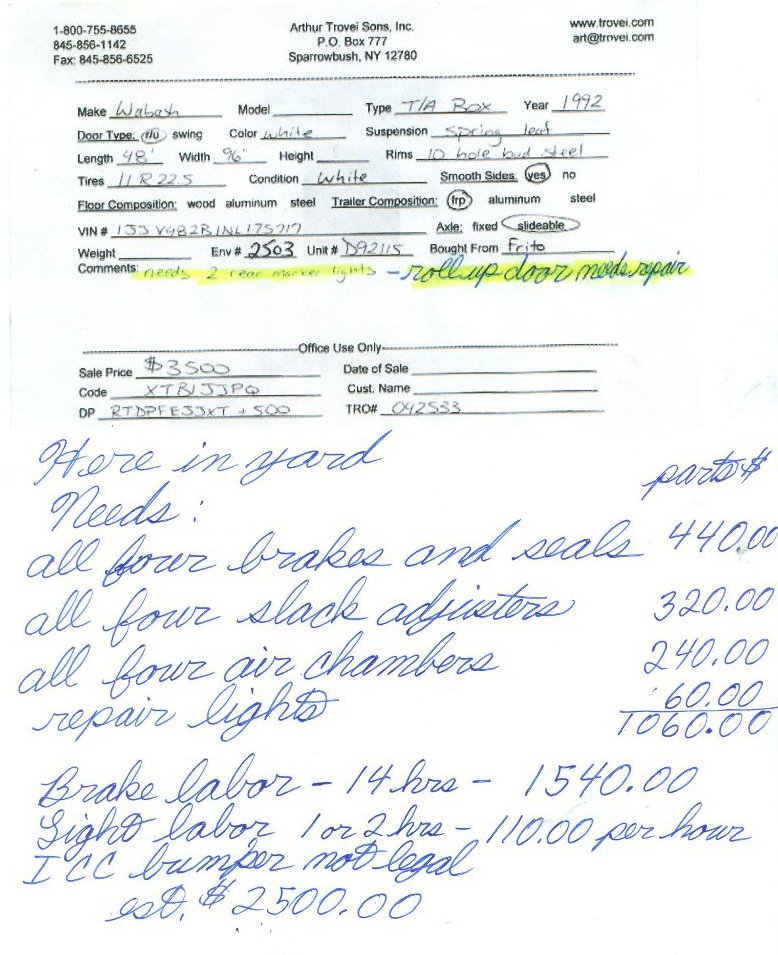 1-800-755-8655
845-856-1142
Fax: 845-856-6525
Arthur Trovei Sons, Inc.
P.O. Box 777
Sparrowbush, NY 12780
www.trovei.com
art@trovei.com
Make Wabash Model Type T/A Box Year 1992
Door Type: r/u swing Color white Suspension spring leaf
Length 48' Width 96" Height Rims 10 hole bud steel
Tires 11 R 22.5 Condition white Smooth Sides: yes no
Floor Composition: wood aluminum steel Trailer Composition: frp aluminum steel
VIN # Axle: fixed slideable
Weight Env # 2503 Unit # D92115 Bought From Frito
Comments: needs 2 rear marker lights - rollup door needs repair
Office Use Only
Sale Price $3500 Date of Sale
Code XTB1JJPQ Cust. Name
DP RTDPFE33XT + 500 TRO# 042533
Here in yard
parts $
Needs:
all four brakes and seals 440.00
all four slack adjusters 320.00
all four air chambers 240.00
repair lights 60.00
1060.00
Brake labor - 14 hrs - 1540.00
Light labor 1 or 2 hrs - 110.00 per hour
ICC bumper not legal
est. $2500.00